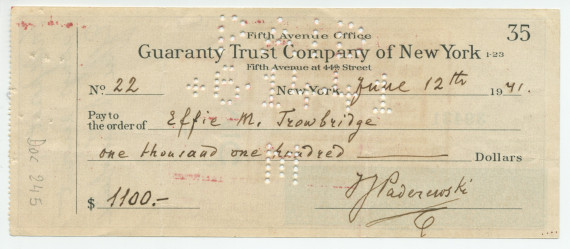 Fifth Avenue Office
35
Guaranty Trust Company of New York 1-23
Fifth Avenue at 44th Street
No. 22 New York, June 12th 1941.
Pay to
the order of Effie M. Trowbridge
one thousand one hundred Dollars
$ 1100.- IJPaderewski
Doc 245